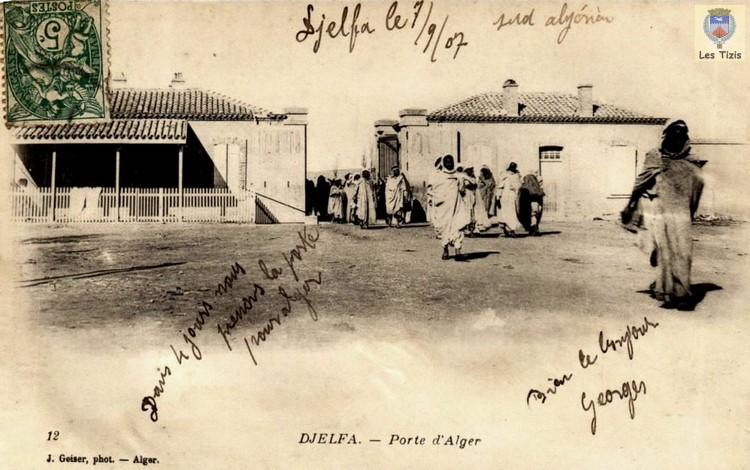 POSTES
5
Djelfa le 7/9/07
sud algérien
Les Tizis
Dans 4 jours nous
prenons la porte
pour alger
Bien le bonjour
Georges
12
DJELFA. — Porte d'Alger
J. Geiser, phot. — Alger.